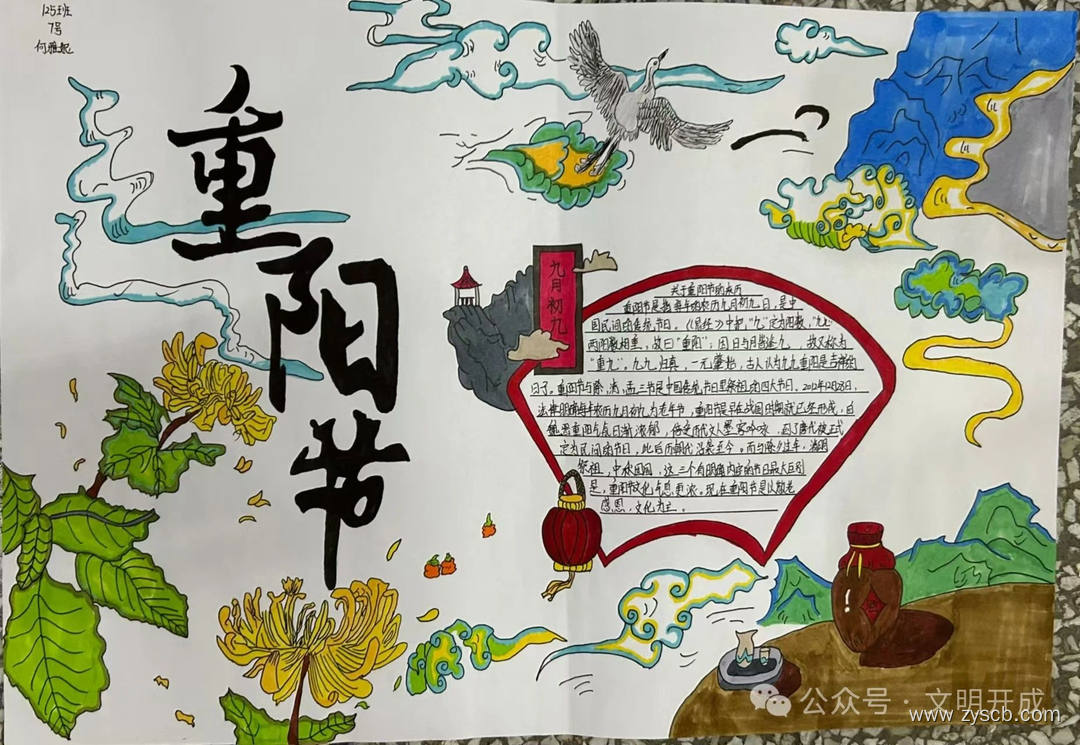 125班
7号
何雅妮
重阳节
九月初九
关于重阳节的来历
重阳节是指每年的农历九月初九日，是中
国民间的传统节日。《易经》中把"九"定为阳数，"九九"
两阳数相重，故曰"重阳"，因日与月皆逢九，故又称为
"重九"。九九归真，一元肇始，古人认为九九重阳是吉祥的
日子。重阳节与除、清、盂三节是中国传统节日里祭祖的四大节日。2012年12月28日，
法律明确每年农历九月初九为老年节，重阳节早在战国时期就已经形成，自
魏晋重阳气氛日渐浓郁，倍受文人墨客吟咏，到了唐代被正式
定为民间的节日，此后历朝代沿袭至今。而与除夕过年，清明
祭祖，中秋团圆，这三个有明确内容的节日最大区别
是，重阳节文化气息更浓。现在重阳节是以敬老
感恩，文化为主。
公众号·文明开成
www.zyscb.com